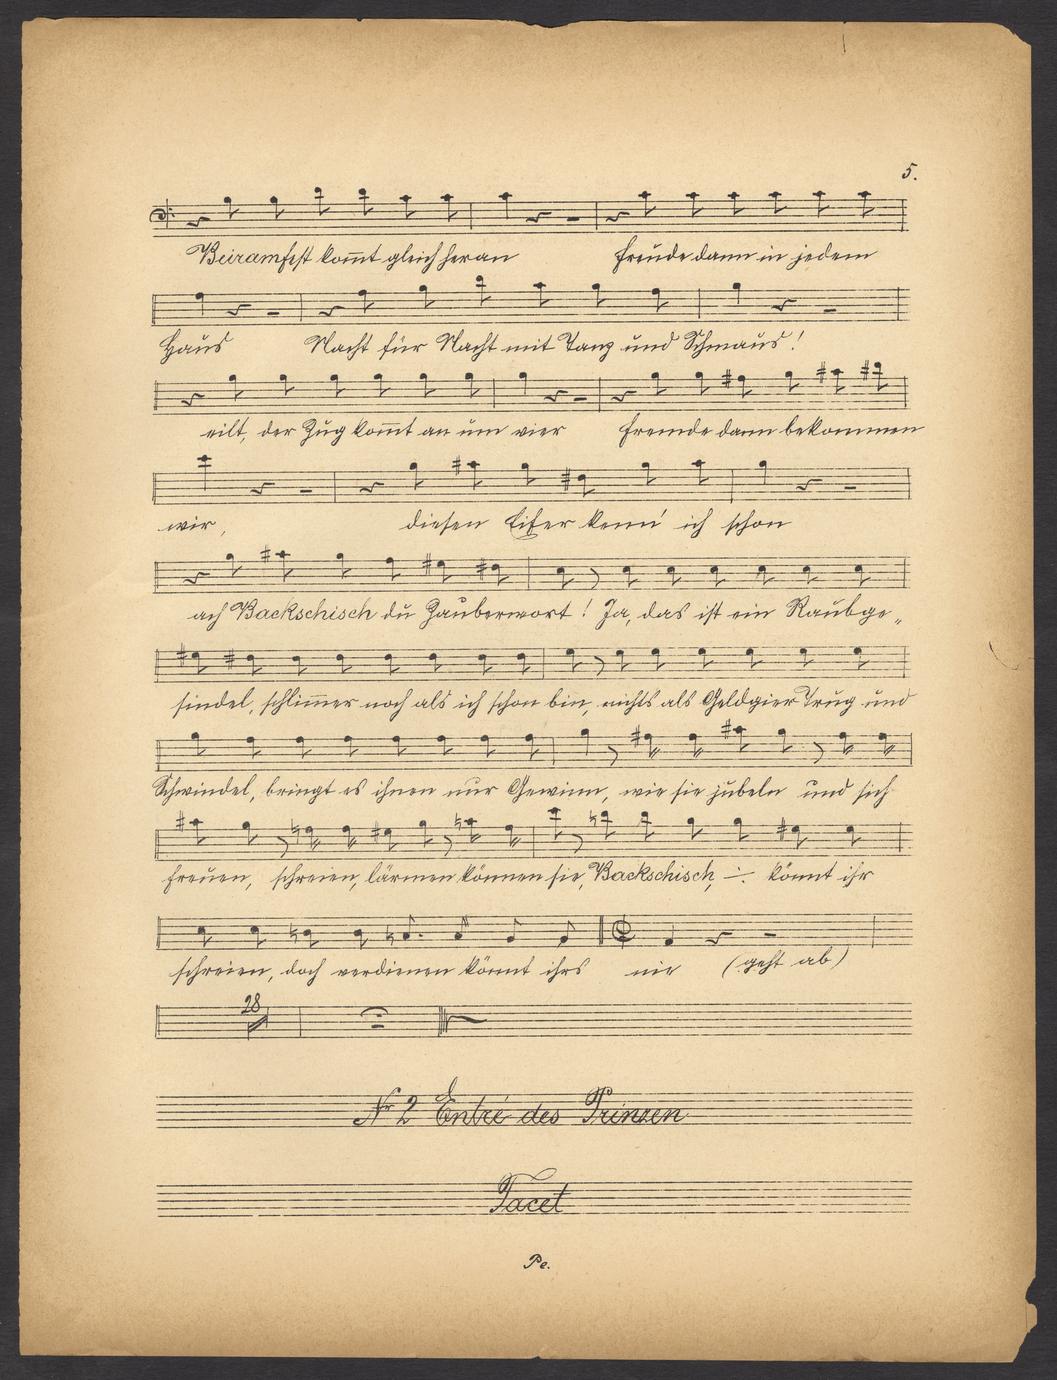 5.
Beiramfest kom̄t gleich heran freude dann in jedem
Haus Nacht für Nacht mit Tanz und Schmaus!
eilt, der Zug kom̄t an um vier fremde dann bekommen
wir, diesen Eifer kenn' ich schon
ach Backschisch du Zauberwort! Ja, das ist ein Raubge„
sindel, schlim̄er noch als ich schon bin, nichts als Geldgier Trug und
Schwindel, bringt es ihnen nur Gewinn, wie sie jubeln und sich
freuen, schreien, lärmen können sie, Backschisch, ÷ könnt ihr
schreien, doch verdienen könnt ihrs nie (geht ab)
28
Nr 2 Entré des Prinzen
Tacet
Pe.